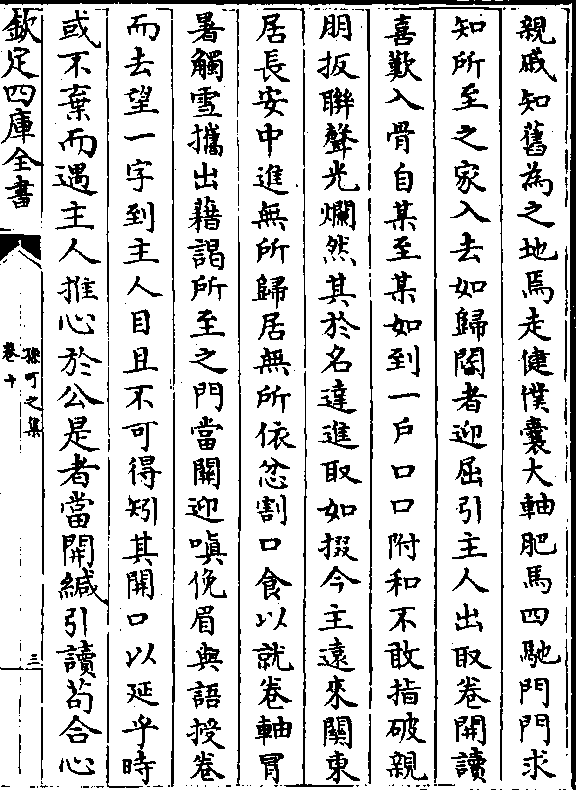 親戚知舊為之地焉走健僕囊大軸肥馬四馳門門求
知所至之家入去如歸閽者迎屈引主人出取卷開讀
喜歎入骨自某至某如到一戶口口附和不敢指破親
朋扳聯聲光爛然其於名達進取如掇今主遠來關東
居長安中進無所歸居無所依忿割口食以就卷軸冒
暑觸雪攜出藉謁所至之門當關迎嗔俛眉與語授卷
而去望一字到主人目且不可得矧其開口以延乎時
或不棄而遇主人推心於公是者當開緘引讀苟合心
欽定四庫全書
孫可之集
卷十
三